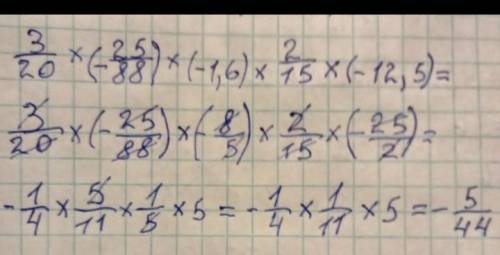 3/20 × (-25/88) × (-1,6) × 2/15 × (-12,5) =
3/20 × (-25/88) × (-8/5) × 2/15 × (-25/2) =
-1/4 × 5/11 × 1/5 × 5 = -1/4 × 1/11 × 5 = -5/44